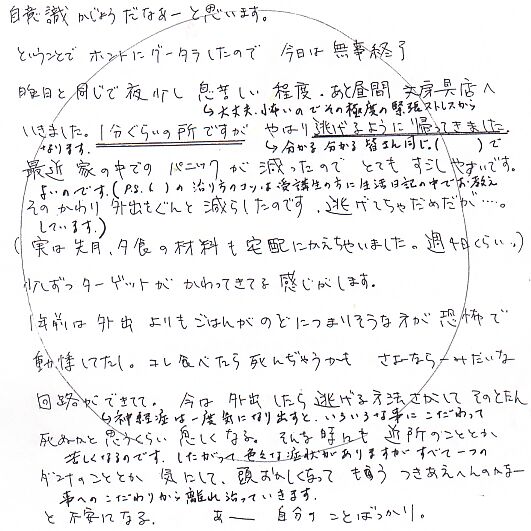 自意識かじょうだなぁーと思います。
ということでホントにグータラしたので 今日は無事終了
昨日と同じで夜少し息苦しい程度。あと昼間 文房具店へ
↳大丈夫、小我いのでその極度の緊張ストレスから
いきました。1分ぐらいの所ですが やはり逃げるように帰ってきました。
なります。 ↳分かる分かる皆さん同じ。( )で
最近 家の中での パニックが減ったので とても すごしやすいです。
よいのです。(P8.6)の治り方のコツは受講生の方に生活日記の中でお教え
そのかわり 外出をぐんと減らしたのです、逃げてちゃだめだが…。
しています。)
(実は先月、夕食の材料も宅配にかえちゃいました。週4日くらいっ)
少しずつターゲットが かわってきてる 感じがします。
1年前は外出 よりもごはんがのどにつまりそうな方が恐怖で
動悸してたし。コレ食べたら死んぢゃうかも さよならーみたいな
回路ができてて。今は 外出したら逃げる方法さがして そのとたん
↳神経症は一度気になり出すと、いろいろな事にこだわって
死ぬかと思うくらい 息しくなる。そんな時にも 近所のこととか
苦しくなるのです。したがって色々な症状がありますがすべて一つの
ダンナのこととか 気にして、頭おかしくなって もぅ つきあえへんのかなー
事へのこだわりから離れ治っていきます。
と 不安になる。 あー 自分の ことばっかり。